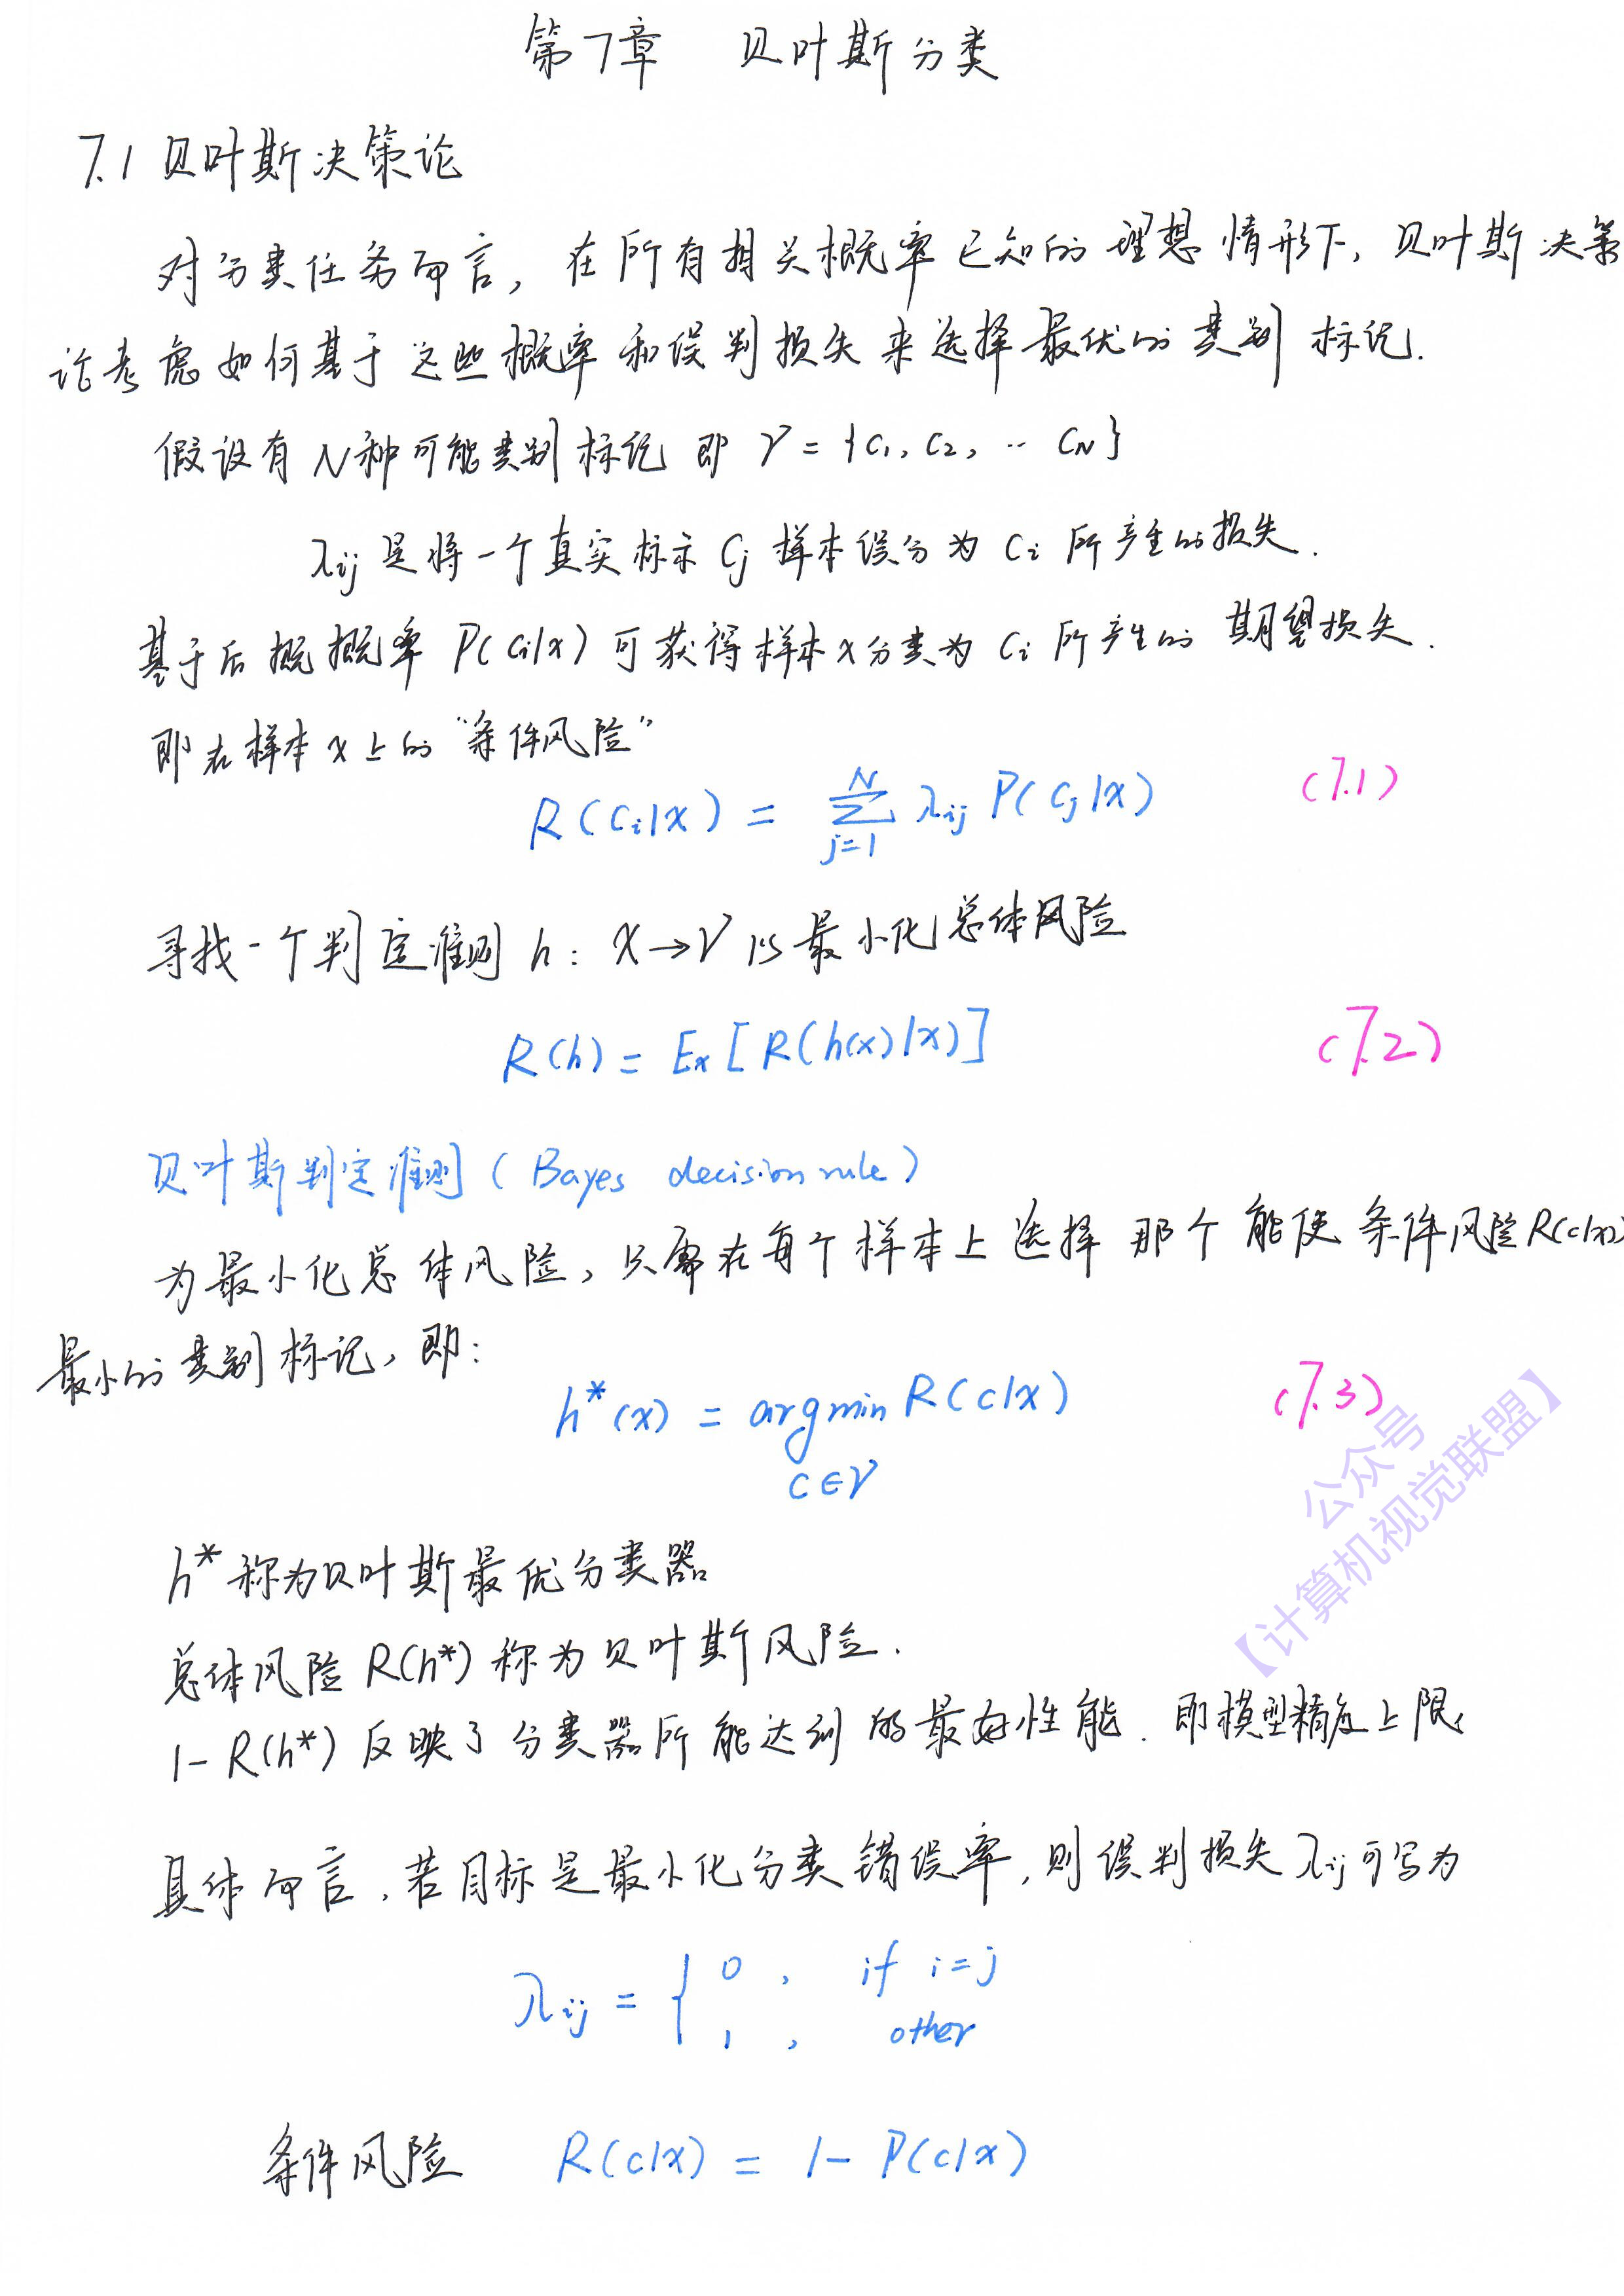 第7章 贝叶斯分类
7.1 贝叶斯决策论
对分类任务而言，在所有相关概率已知的理想情形下，贝叶斯决策
论考虑如何基于这些概率和误判损失来选择最优的类别标记.
假设有N种可能类别标记 即 𝒴 = {c₁, c₂, ·· c_N}
λij 是将一个真实标示 Cj 样本误分为 Ci 所产生的损失.
基于后概概率 P(Ci|x) 可获得样本x分类为 Ci 所产生的期望损失.
即在样本x上的“条件风险”
R(Ci|x) = ∑_{j=1}^{N} λij P(Cj|x) (7.1)
寻找一个判定准则 h: X→𝒴 以最小化总体风险
R(h) = Ex[R(h(x)|x)] (7.2)
贝叶斯判定准则 (Bayes decision rule)
为最小化总体风险, 只需在每个样本上选择那个能使条件风险R(c|x)
最小的类别标记, 即:
h*(x) = argmin R(c|x) (7.3)
c∈𝒴
h* 称为贝叶斯最优分类器
总体风险 R(h*) 称为贝叶斯风险.
1-R(h*) 反映了分类器所能达到的最好性能. 即模型精度上限
具体而言, 若目标是最小化分类错误率, 则误判损失 λij 可写为
λij = { 0 , if i=j
1 , other
条件风险 R(c|x) = 1-P(c|x)
公众号
【计算机视觉联盟】